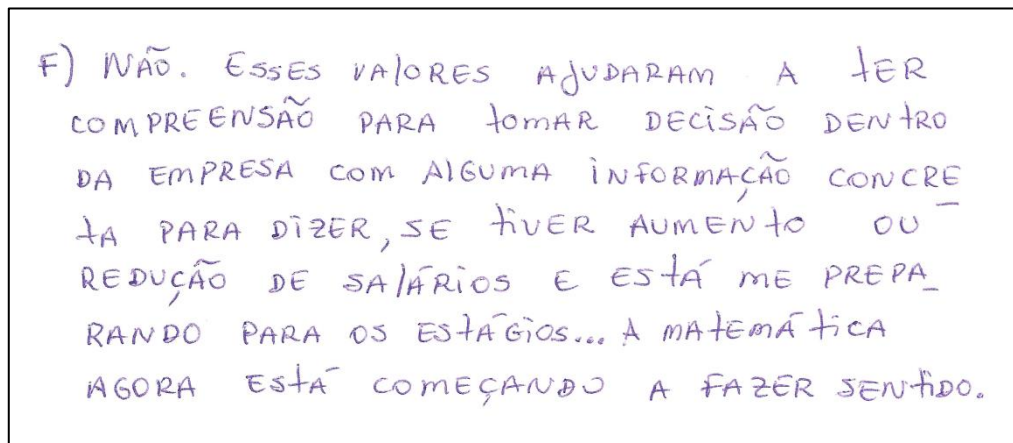 F) NÃO. ESSES VALORES AJUDARAM A TER
COMPREENSÃO PARA TOMAR DECISÃO DENTRO
DA EMPRESA COM ALGUMA INFORMAÇÃO CONCRE
TA PARA DIZER, SE TIVER AUMENTO OU
REDUÇÃO DE SALÁRIOS E ESTÁ ME PREPA_
RANDO PARA OS ESTÁGIOS... A MATEMÁTICA
AGORA ESTÁ COMEÇANDO A FAZER SENTIDO.